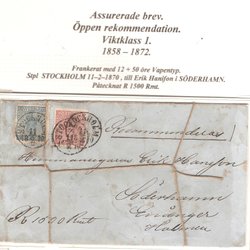 Assurerade brev.
Öppen rekommendation.
Viktklass 1.
1858 – 1872.
Frankerat med 12 + 50 öre Vapentyp.
Stpl STOCKHOLM 11–2–1870 , till Erik Hanifon i SÖDERHAMN.
Påtecknat R 1500 Rmt.
STOCKHOLM
Recommenderas
Erik Hansson
Söderhamn
R 1500 Rmt